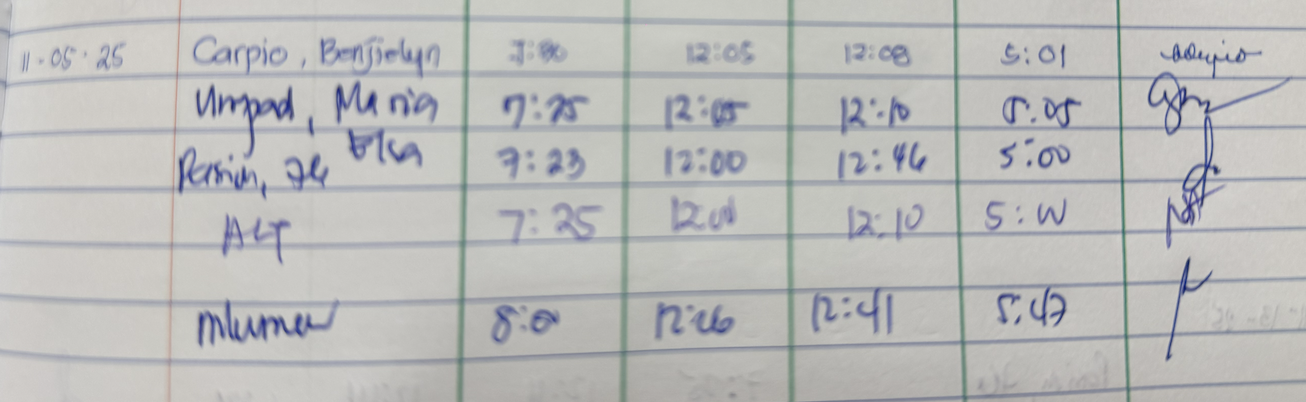 11-05-25 Carpio, Benjielyn 7:30 12:05 12:08 5:01
Umpad, Maria 7:25 12:05 12:10 5:05
Elsa
7:23 12:00 12:46 5:00
ALT 7:25 12:00 12:10 5:00
12:26 12:41 5:47